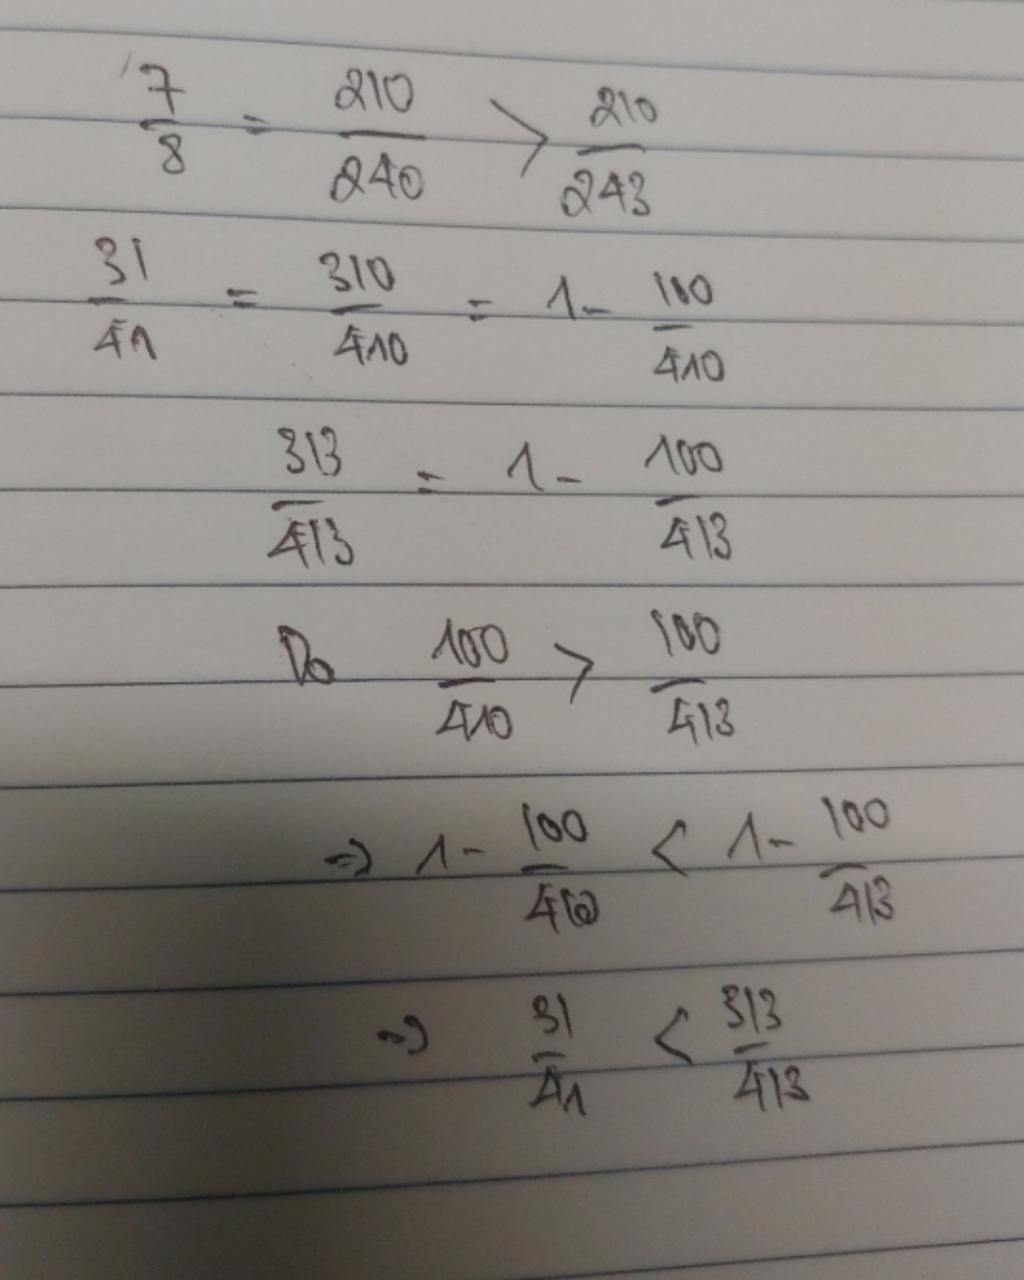 7/8 = 210/240 > 210/243
31/41 = 310/410 = 1 - 100/410
313/413 = 1 - 100/413
Do 100/410 > 100/413
⇒ 1 - 100/410 < 1 - 100/413
⇒ 31/41 < 313/413